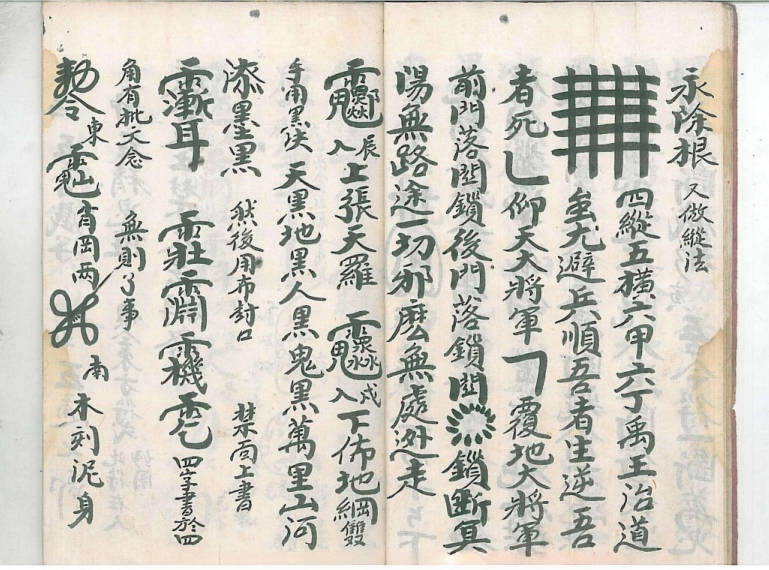 永除根 又做縱法
四縱五橫六甲六丁禹王治道
蚩尤避兵順吾者生逆吾
者死 仰天大將軍 覆地大將軍
前門落閉鎖後門落鎖閉 鎖斷冥
陽無路途一切邪麽無處迯走
辰入上張天羅 戍入下佈地網雙
手用黑訣 天黑地黑人黑鬼黑萬里山河
添墨黑 然後用布封口 禁面上書
四字書於四
角有批文念 無則了事
勅令 東 南 木刻泥身